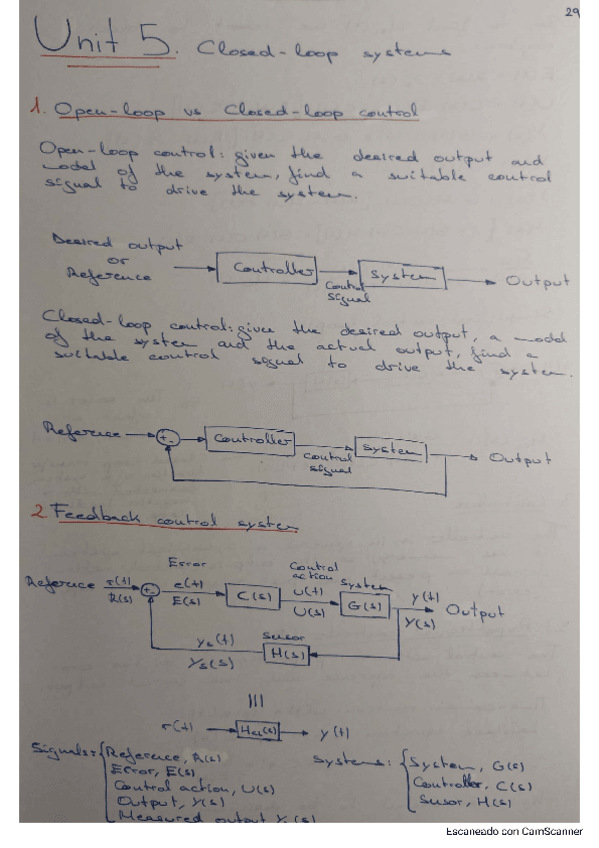 29
Unit 5. Closed-loop systems
1. Open-loop vs Closed-loop control
Open-loop control: given the desired output and
model of the system, find a suitable control
signal to drive the system.
Desired output
or
Reference
Controller
Control
signal
System
Output
Closed-loop control: given the desired output, a model
of the system and the actual output, find a
suitable control signal to drive the system.
Reference
+
-
Controller
control
signal
System
Output
2. Feedback control system
Reference
r(t)
R(s)
+
-
Error
e(t)
E(s)
C(s)
Control
action
u(t)
U(s)
System
G(s)
y(t)
Y(s)
Output
ys(t)
Ys(s)
Sensor
H(s)
III
r(t)
Hcl(s)
y(t)
Signals: { Reference, R(s)
Error, E(s)
Control action, U(s)
Output, Y(s)
Measured output Ys(s)
Systems: { System, G(s)
Controller, C(s)
Sensor, H(s)
Escaneado con CamScanner